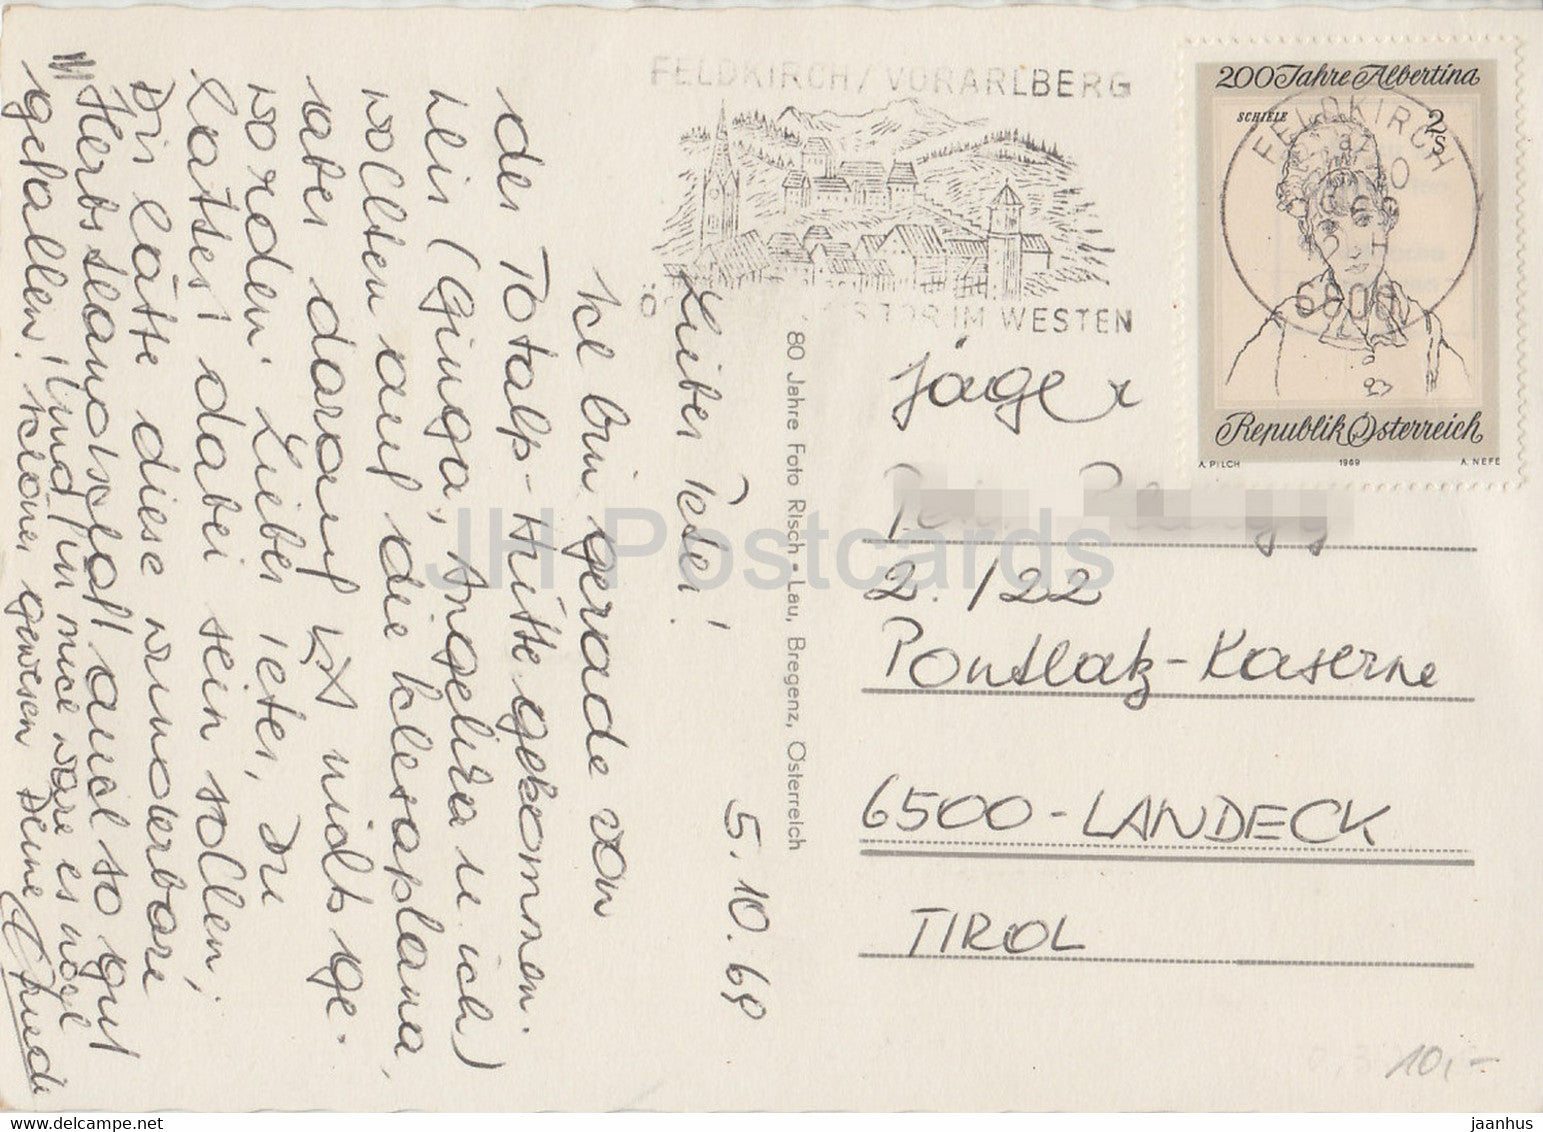 FELDKIRCH/VORARLBERG
IM WESTEN
200 Jahre Albertina
SCHIELE
2 S
FELDKIRCH
6800
Republik Österreich
A. PILCH
1969
A. NEFE
5.10.69
Lieber Peter!
Ich bin gerade von
der Totalp-Hütte gekommen.
Wir (Ginga, Angelika u ich)
wollten auf die Schesaplana,
aber darauf ist nichts ge-
worden. Lieber Peter, Du
hättest dabei sein sollen;
Dir hätte diese wunderbare
Herbstlandschaft auch so gut
gefallen! Und für mich wäre es noch
schöner gewesen Deine
80 Jahre Foto Risch-Lau, Bregenz, Österreich
Jäger
2./22
Pontlatz-Kaserne
6500-LANDECK
TIROL
10,-
JH Postcards
jaanhus
www.delcampe.net